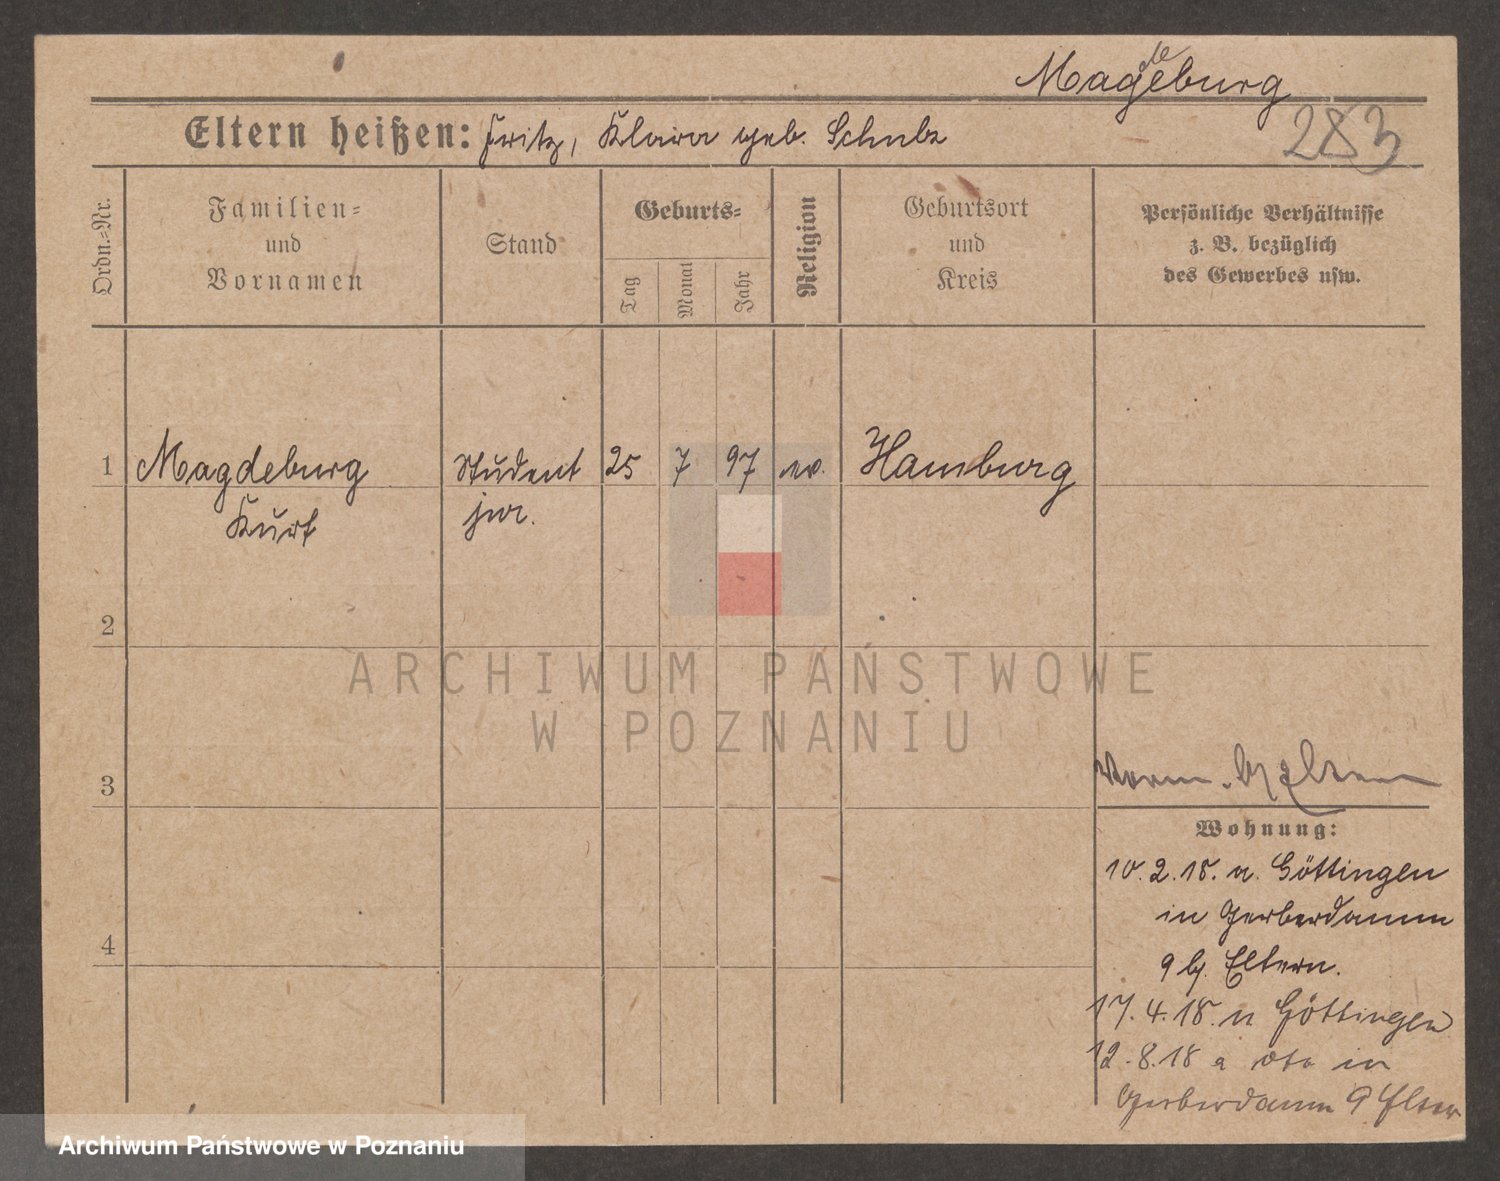 Magdeburg
283
Eltern heißen: Fritz, Klara geb. Schulz
Ordn.=Nr.
Familien=
und
Vornamen
Stand
Geburts=
Tag
Monat
Jahr
Religion
Geburtsort
und
Kreis
Persönliche Verhältnisse
z. B. bezüglich
des Gewerbes usw.
1 Magdeburg Student 25 7 97 ev. Hamburg
Kurt jur.
2
3
4
Wohnung:
10.2.18. a. Göttingen
in Gerberdamm
9 b. Eltern.
17.4.18. n Göttingen
12.8.18 a dto in
Gerberdamm 9 Eltern
ARCHIWUM PAŃSTWOWE
W POZNANIU
Archiwum Państwowe w Poznaniu